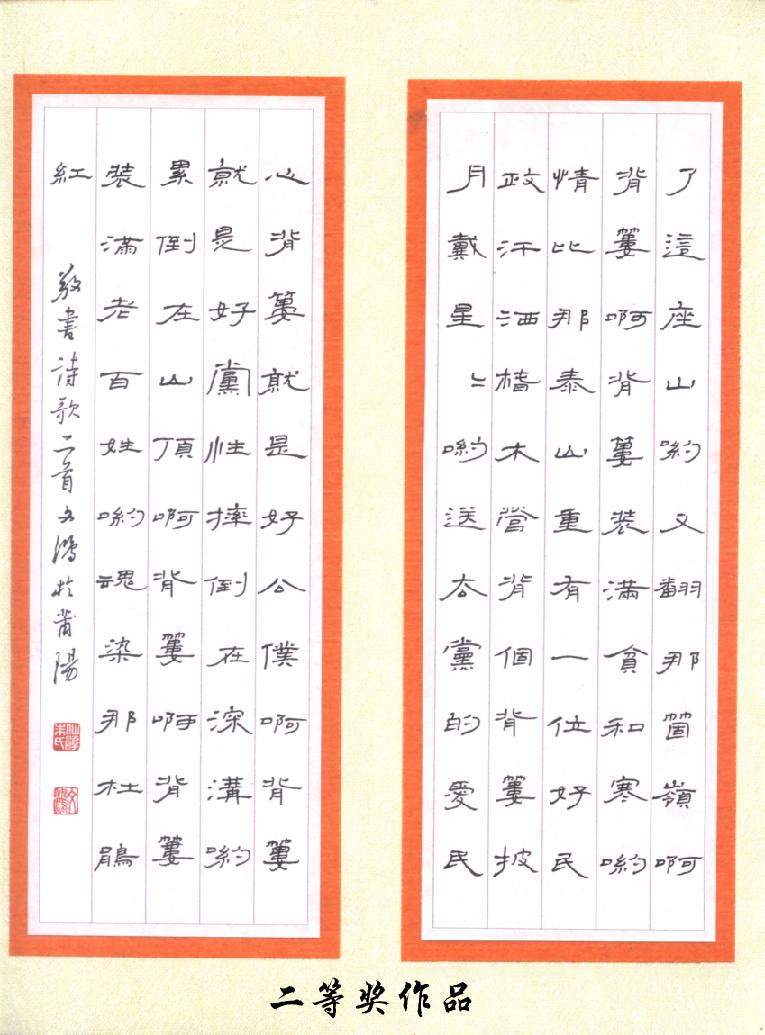 了這座山喲又翻那箇嶺啊
背簍啊背簍裝滿貧和寒喲
情比那泰山重有一位好民
政汗洒木營背個背簍披
月戴星〻喲送去黨的愛民
心背簍就是好公僕啊背簍
就是好黨性摔倒在深溝喲
累倒在山頂啊背簍啊背簍
裝滿老百姓喲魂染那杜鵑
紅
敬書詩歌二首文鴻於莆陽
二等奖作品